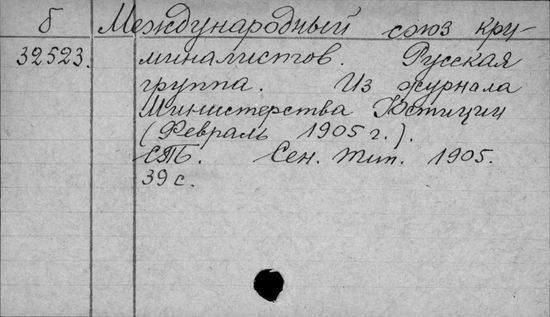 б Международный союз кру-
32523. миналистов. Русская
группа. Из журнала
Министерства Юстиции
(Февраль 1905 г.).
СПб. Сен. тип. 1905.
39 с.